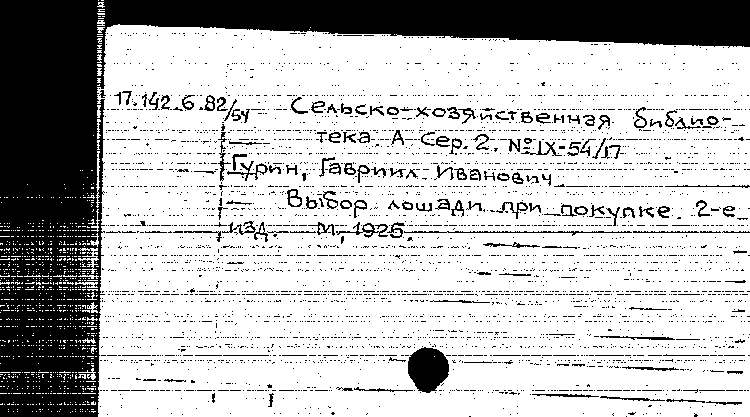 17.142.6.82/54 Сельско-хозяйственная библио-
тека. А Сер. 2. № IX-54/17
Гурин, Гавриил Иванович
Выбор лошади при покупке. 2-е
изд. М., 1926.